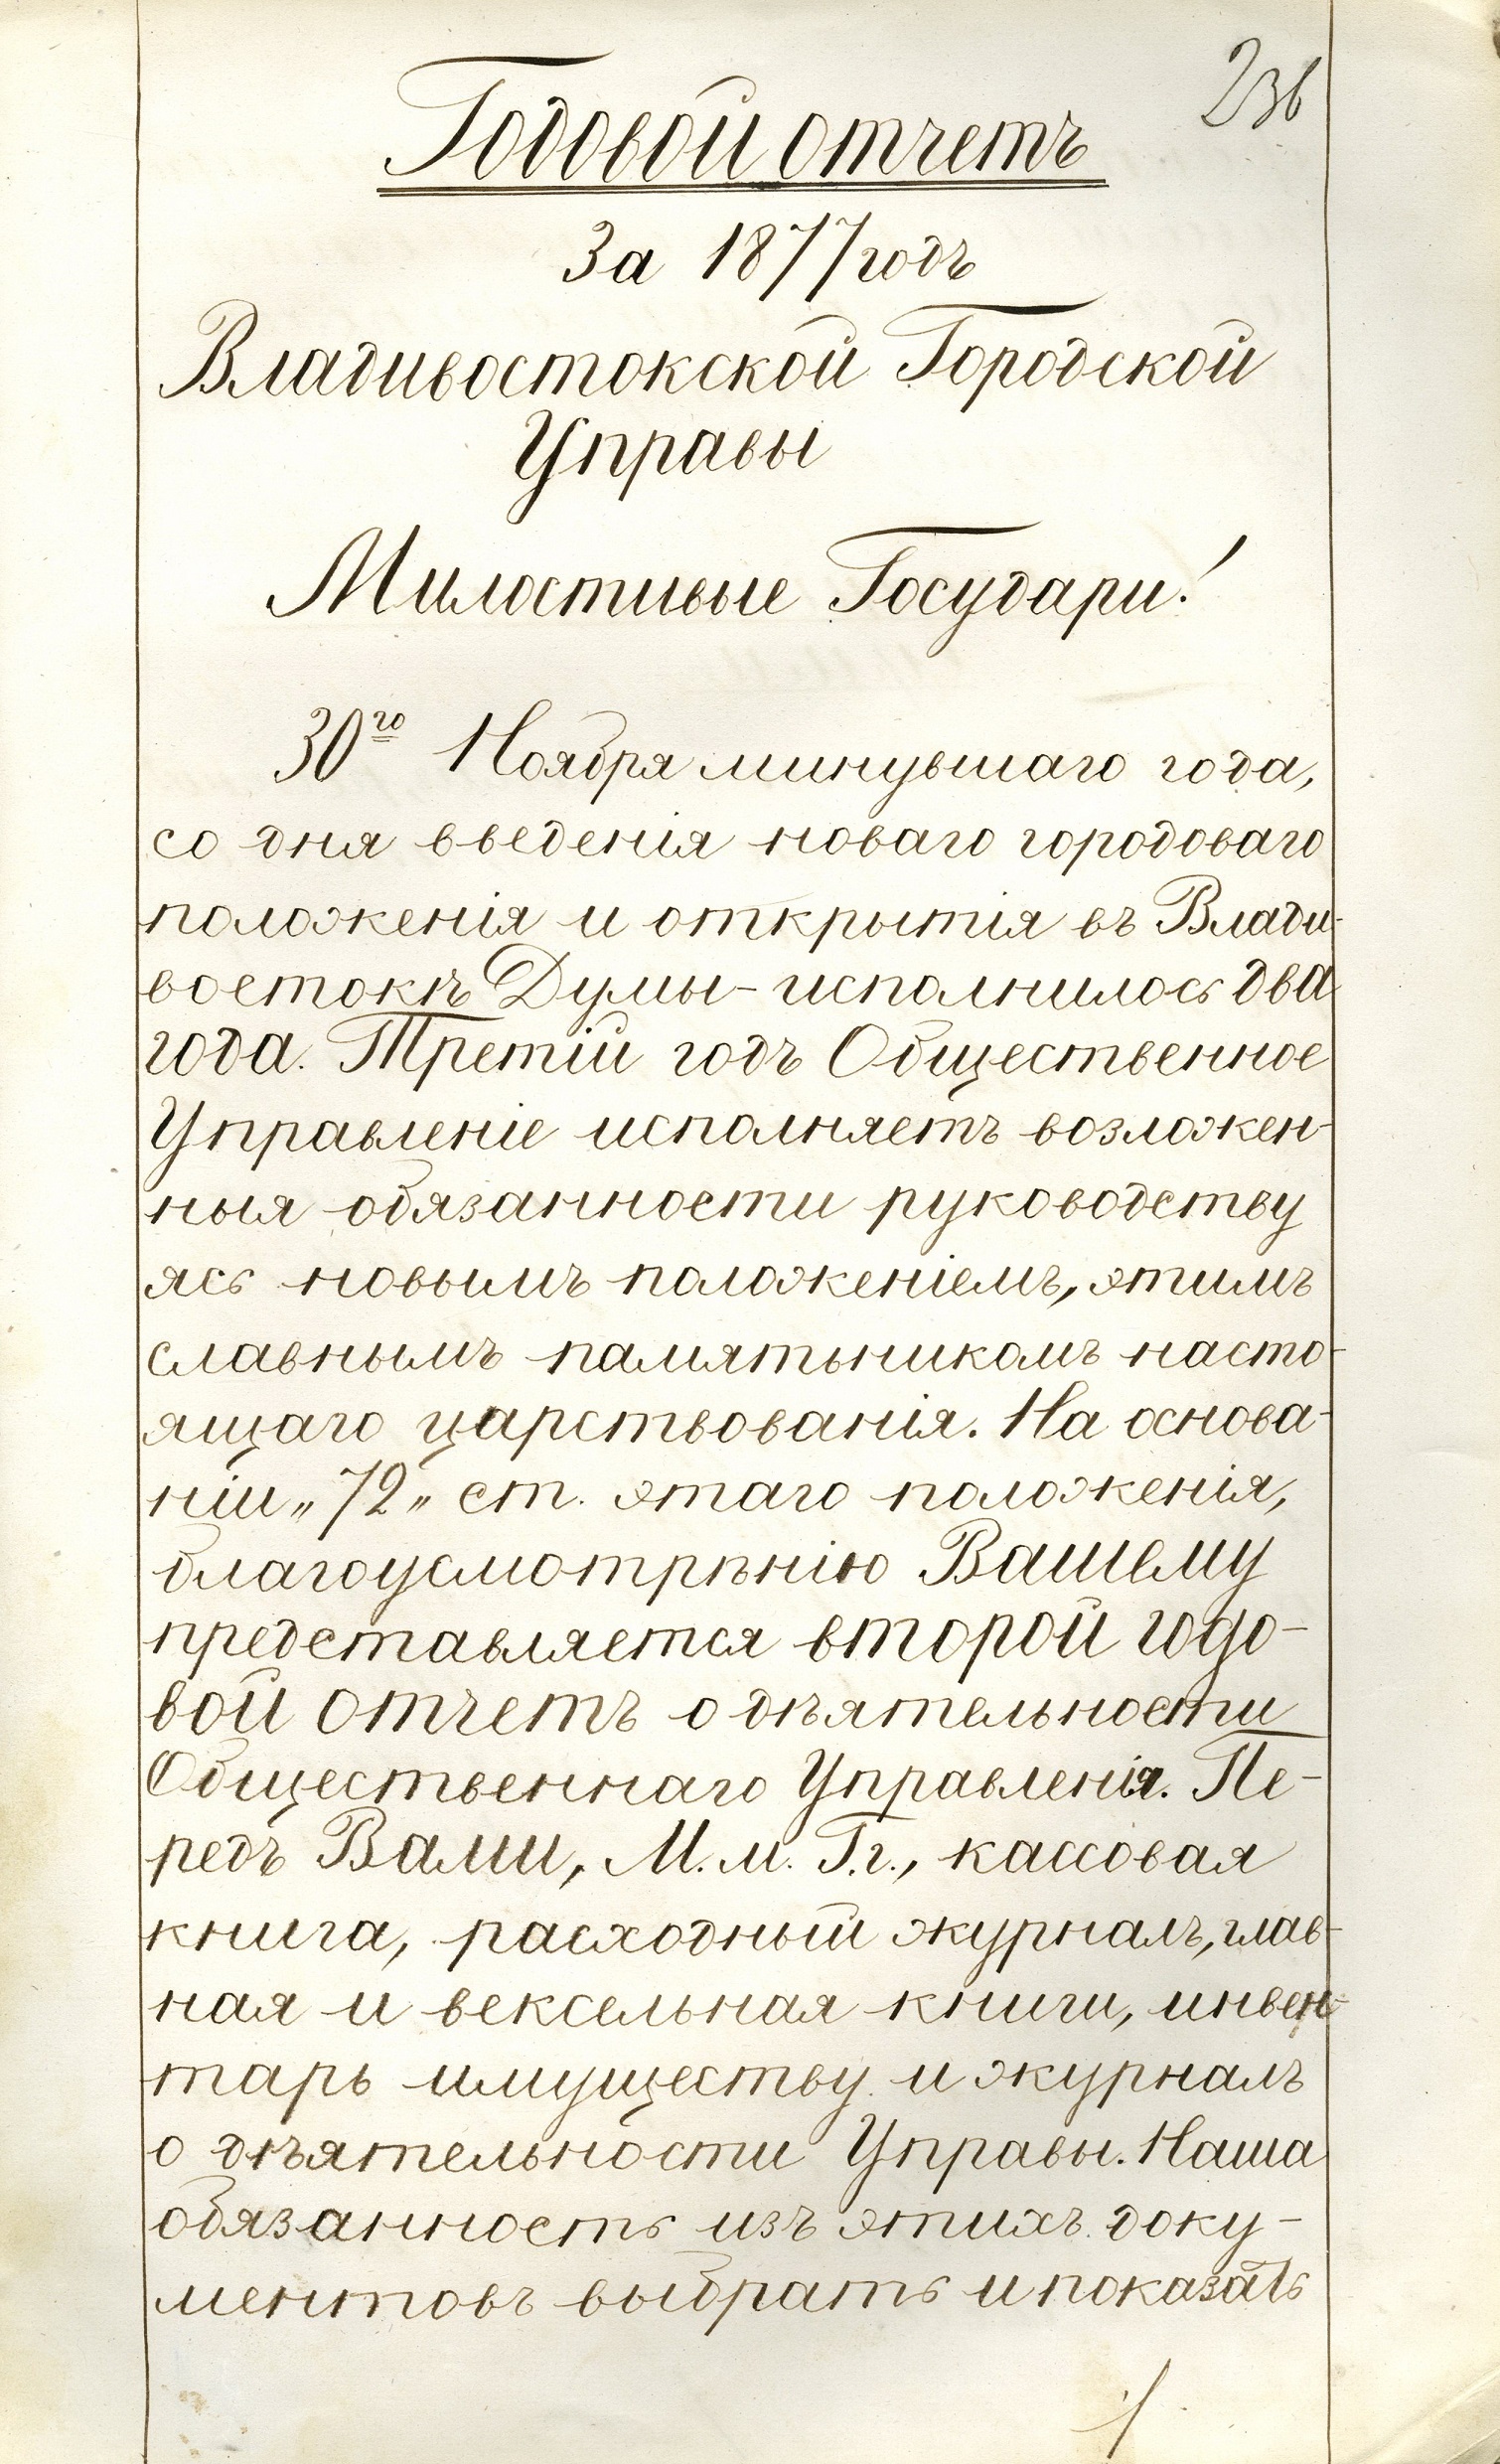 236
Годовой отчетъ
За 1877 годъ
Владивостокской Городской
Управы
Милостивые Государи!
30го Ноября минувшаго года,
со дня введенія новаго городоваго
положенія и открытія въ Влади-
востокѣ Думы - исполнилось два
года. Третій годъ Общественное
Управленіе исполняетъ возложен-
ныя обязанности руководству
ясь новымъ положеніемъ, этимъ
славнымъ памятьникомъ насто-
ящаго царствованія. На основа-
ніи „72„ ст. этаго положенія,
благоусмотрѣнію Вашему
представляется второй годо-
вой отчетъ о дѣятельности
Общественнаго Управленія. Пе-
редъ Вами, М.м. Г.г., кассовая
книга, расходный журналъ, глав-
ная и вексельная книги, инвен-
тарь имуществу и журналъ
о дѣятельности Управы. Наша
обязанность изъ этихъ доку-
ментовъ выбрать и показать